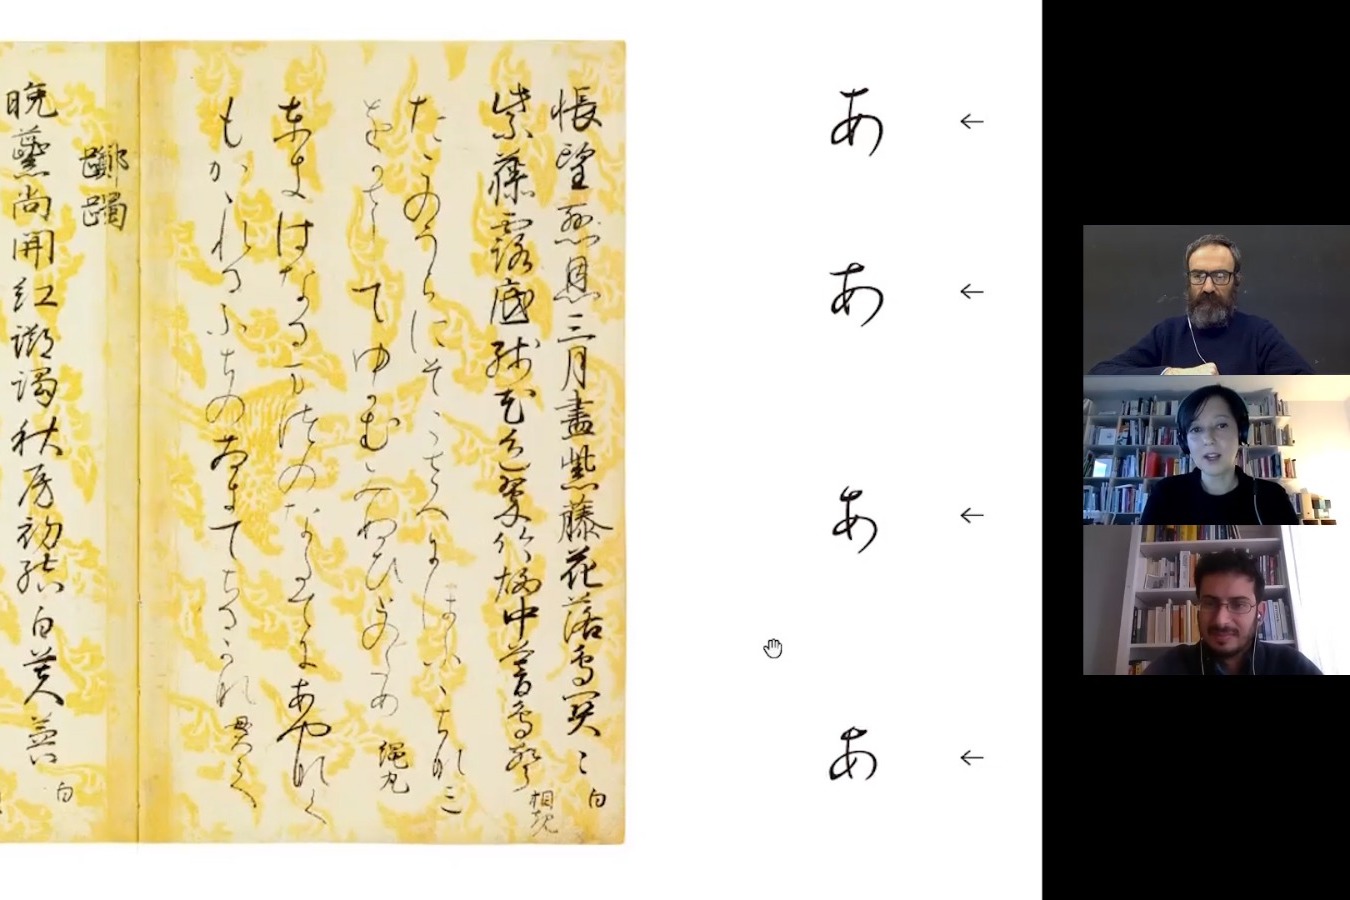 悵望慈恩三月盡紫藤花落鳥關〻 白
紫藤露底殘花色翠竹煙中暮鳥聲 相規
たこのうらにそこさへにほふふちなみ
をかさしてゆかむみぬひとのため 縄丸
ときはなるまつのなたてにあやなく
もかゝれるふちのさきてちるかな 貫之
躑躅
晩蘂尚開紅躑躅秋房初結白芙蓉 白
あ ←
あ ←
あ ←
あ ←